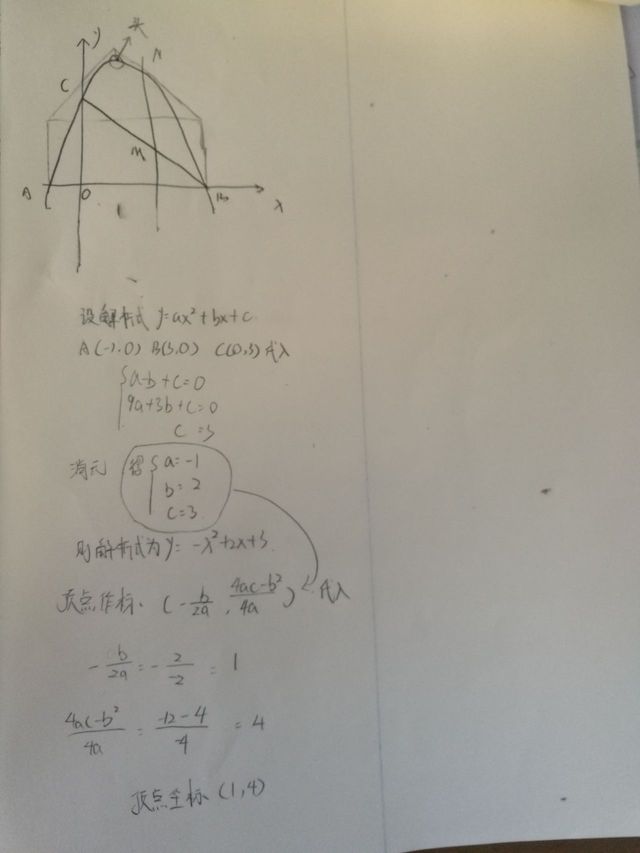 y
C
N
M
A
O
B
x
1
设解析式 y=ax²+bx+c
A(-1,0) B(3,0) C(0,3)代入
a-b+c=0
9a+3b+c=0
c=3
消元
a=-1
b=2
c=3
则解析式为y=-x²+2x+3
顶点作标、(-b/2a, 4ac-b²/4a) 代入
-b/2a=-2/-2=1
4ac-b²/4a=-12-4/-4=4
顶点坐标(1,4)